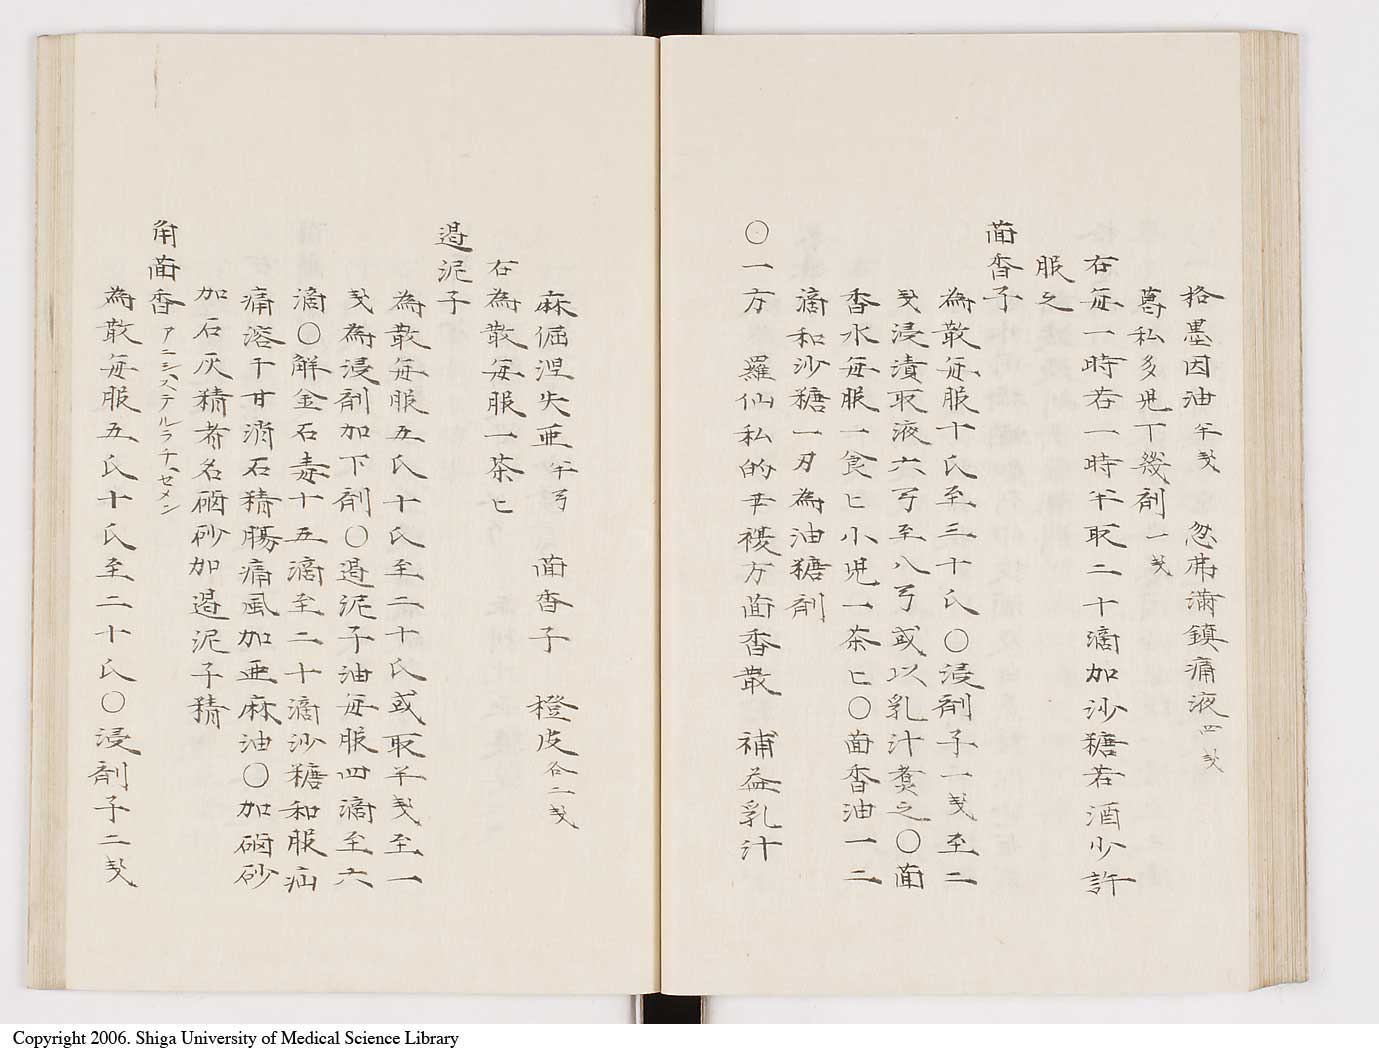 格墨因油 半戔 忽弗満鎮痛液 四戔
蓦私多児下幾剤 一戔
右每一時若一時半取二十滴加沙糖若酒少許
服之
茴香子
為散每服十氏至三十氏〇浸剤子一戔至二
戔浸漬取液六弓至八弓或以乳汁煮之〇茴
香水每服一食匕小児一茶匕〇茴香油一二
滴和沙糖一刃為油糖剤
〇一方 羅仙私的乎褑方茴香散 補益乳汁
麻倔涅失亜 半弓 茴香子 橙皮 各二戔
右為散每服一茶匕
遏泥子
為散每服五氏十氏至二十氏或取半戔至一
戔為浸剤加下剤〇遏泥子油每服四滴至六
滴〇解金石毒十五滴至二十滴沙糖和服疝
痛溶于甘消石精腸痛風加亜麻油〇加硇砂
加石灰精者名硇砂加遏泥子精
角茴香 アニシステルラチ、ゼメン
為散每服五氏十氏至二十氏〇浸剤子二戔
Copyright 2006. Shiga University of Medical Science Library